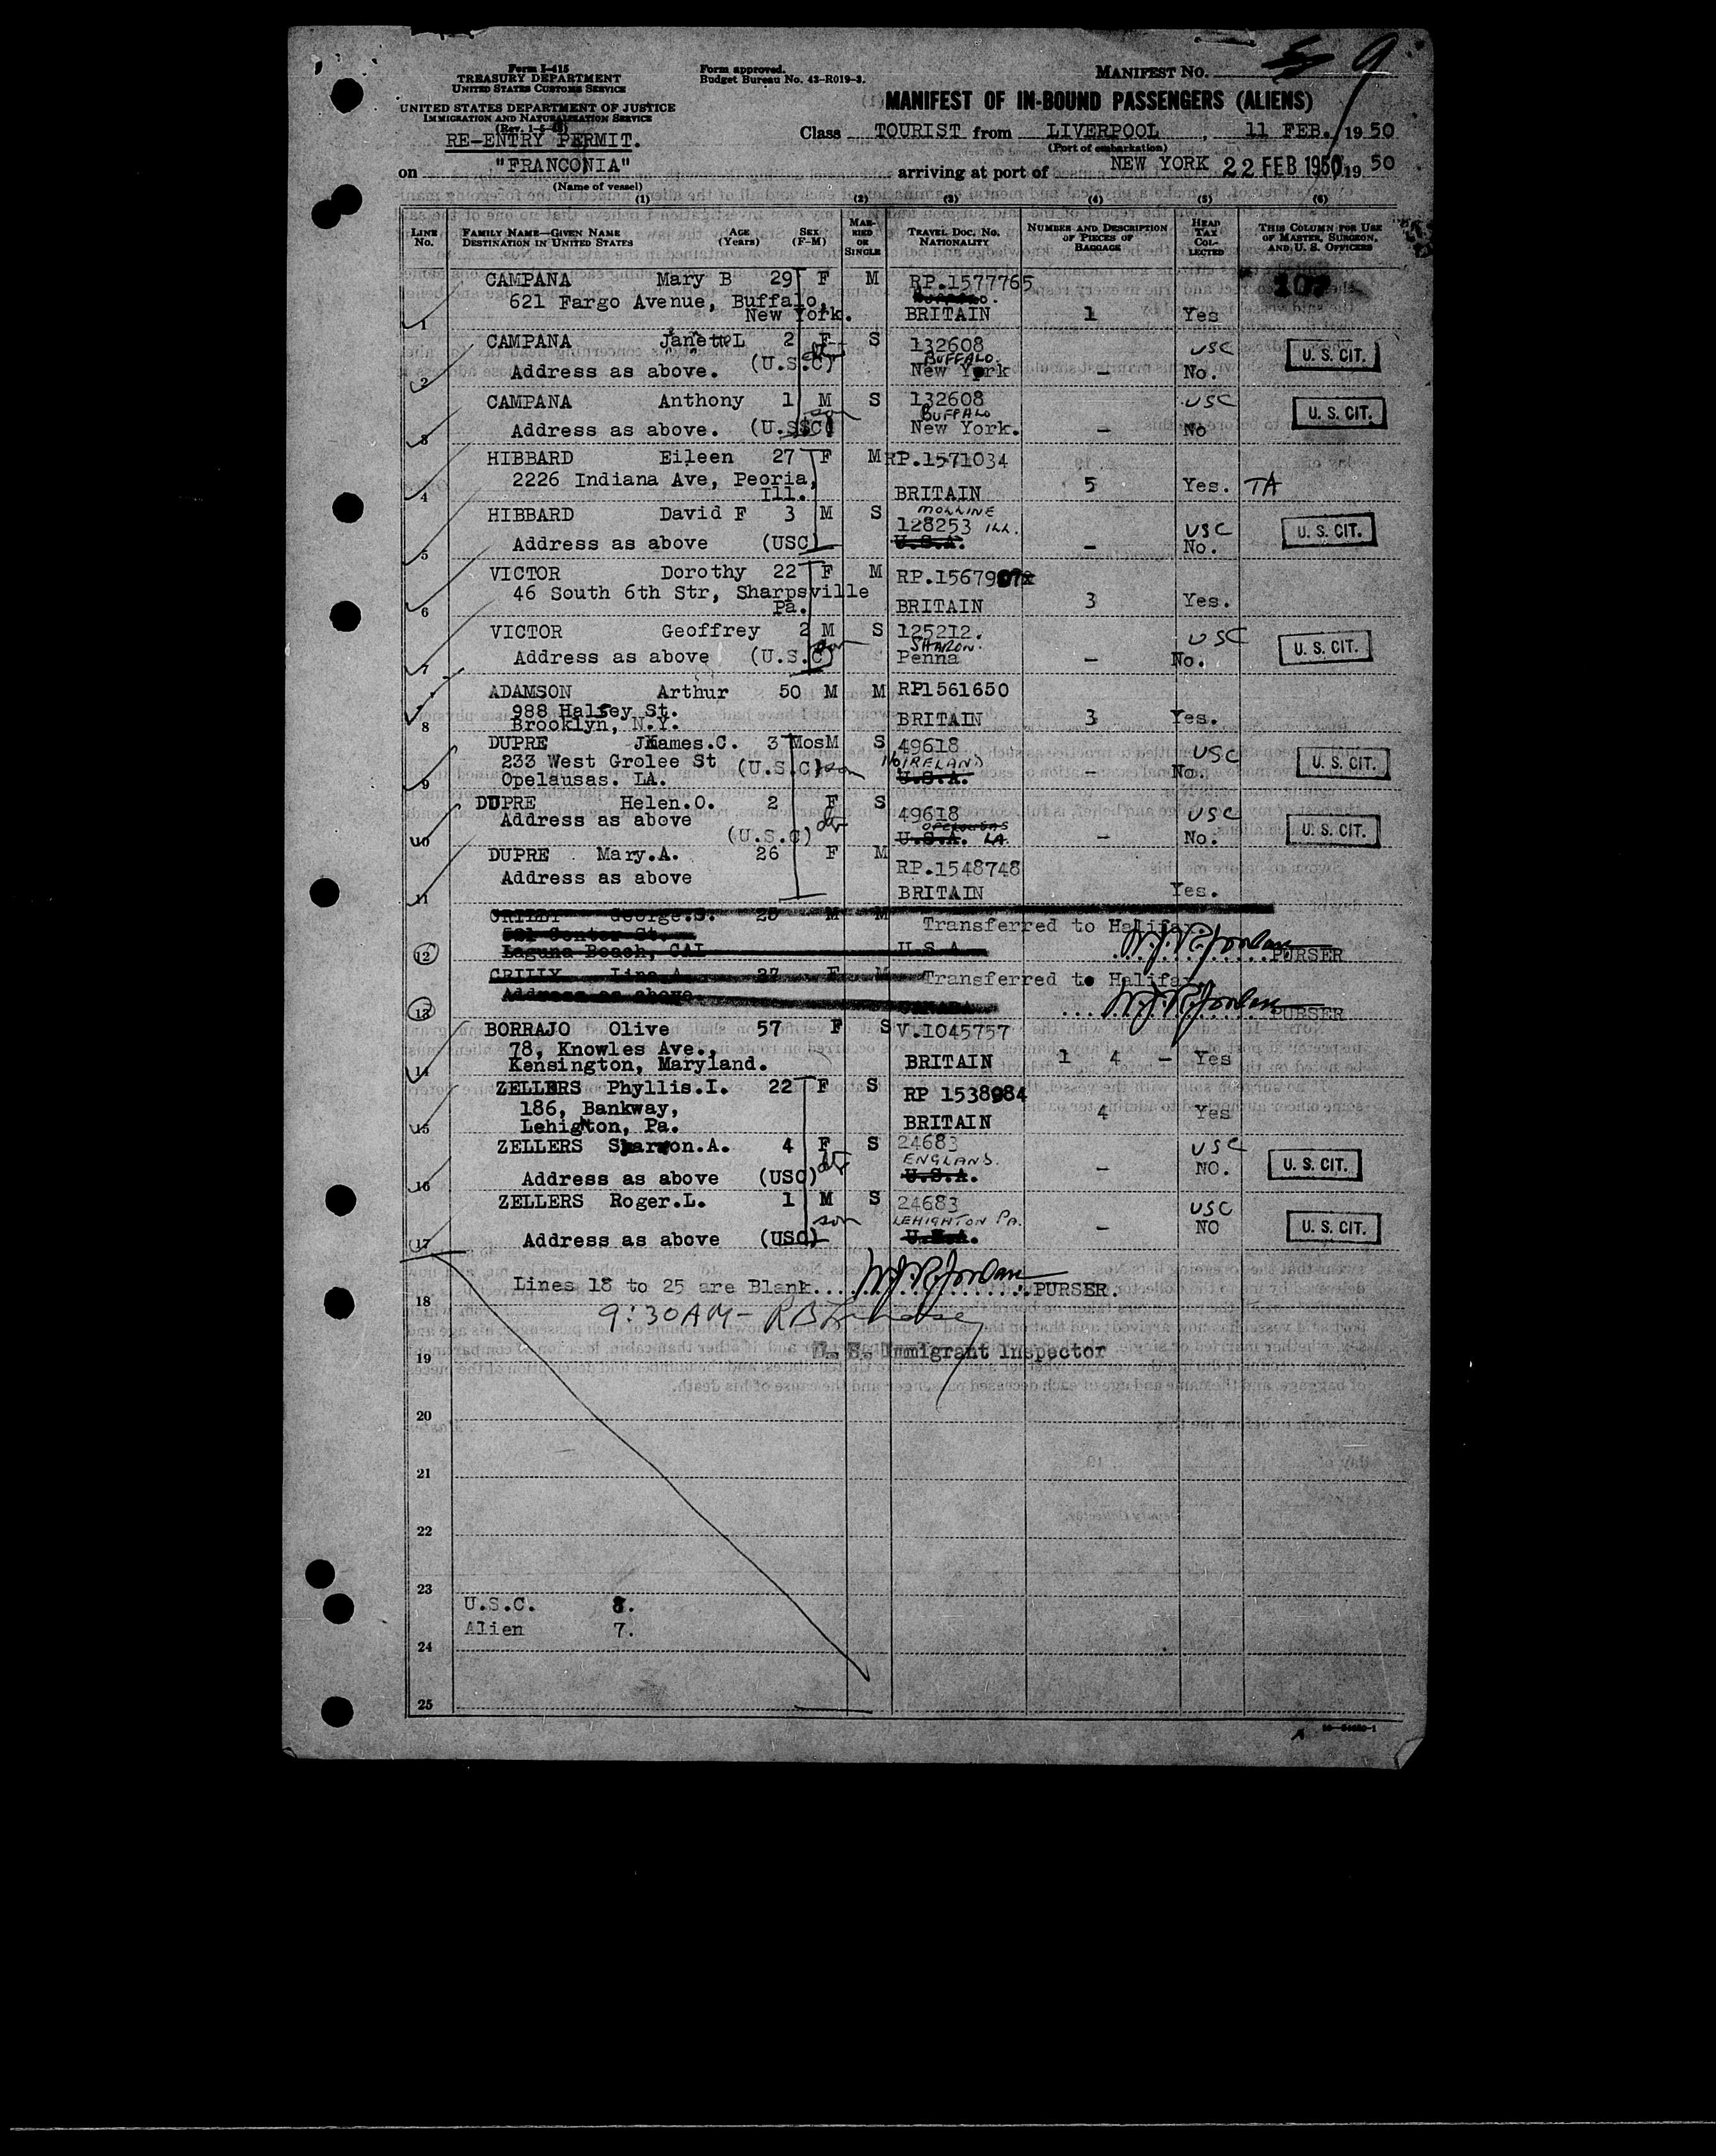 Form I-415
TREASURY DEPARTMENT
UNITED STATES CUSTOMS SERVICE
UNITED STATES DEPARTMENT OF JUSTICE
IMMIGRATION AND NATURALIZATION SERVICE
RE-ENTRY PERMIT.
Form approved.
Budget Bureau No. 43-R019-3.
MANIFEST No. 9
MANIFEST OF IN-BOUND PASSENGERS (ALIENS)
Class TOURIST from LIVERPOOL, 11 FEB. 1950
(Port of embarkation)
on "FRANCONIA" arriving at port of NEW YORK 22 FEB 1950, 19 50
(Name of vessel)
(1) (2) (3) (4) (5) (6)
LINE No. FAMILY NAME—GIVEN NAME DESTINATION IN UNITED STATES AGE (Years) SEX (F-M) MARRIED OR SINGLE TRAVEL DOC. NO. NATIONALITY NUMBER AND DESCRIPTION OF PIECES OF BAGGAGE HEAD TAX COLLECTED THIS COLUMN FOR USE OF MASTER, SURGEON, AND U. S. OFFICERS
CAMPANA Mary B 29 F M RP.1577765 107
621 Fargo Avenue, Buffalo,
1 New York. BRITAIN 1 Yes
CAMPANA Janet L 2 F S 132608 USC U. S. CIT.
(U.S.C) dtr BUFFALO
2 Address as above. New York - No.
CAMPANA Anthony 1 M S 132608 USC U. S. CIT.
son BUFFALO
3 Address as above. (U.S.C) New York. - No
HIBBARD Eileen 27 F M RP.1571034
2226 Indiana Ave, Peoria,
4 Ill. BRITAIN 5 Yes. TA
HIBBARD David F 3 M S MOLLINE
128253 ILL. USC U. S. CIT.
5 Address as above (USC) U.S.A. - No.
VICTOR Dorothy 22 F M
46 South 6th Str, Sharpsville
6 Pa. BRITAIN 3 Yes.
VICTOR Geoffrey 2 M S 125212. USC U. S. CIT.
son SHARON.
7 Address as above (U.S.C) Penna - No.
ADAMSON Arthur 50 M M RP1561650
988 Halsey St.
8 Brooklyn, N.Y. BRITAIN 3 Yes.
DUPRE James.C. 3 Mos M S 49618 USC U. S. CIT.
233 West Grolee St (U.S.C) son IRELAND
9 Opelausas. LA. U.S.A. - No.
DUPRE Helen.O. 2 F S 49618 USC U. S. CIT.
Address as above dtr OPELOUSAS
10 (U.S.C) U.S.A. LA - No.
DUPRE Mary.A. 26 F M RP.1548748
11 Address as above BRITAIN Yes.
George.S. 25 M M Transferred to Halifax
12 Laguna Beach, CAL U.S.A. W.J.R. Jordan PURSER
CRILLY Lina A 27 F M Transferred to Halifax
13 Address as above. CANADA W.J.R. Jordan PURSER
BORRAJO Olive 57 F S V.1045757
78, Knowles Ave.,
14 Kensington, Maryland. BRITAIN 1 4 - Yes
ZELLERS Phyllis.I. 22 F S RP 1538984
186, Bankway,
15 Lehighton, Pa. BRITAIN 4 Yes
ZELLERS Sharon.A. 4 F S 24683 USC U. S. CIT.
dtr ENGLAND.
16 Address as above (USC) U.S.A. - NO.
ZELLERS Roger.L. 1 M S 24683 USC U. S. CIT.
son LEHIGHTON PA.
17 Address as above (USC) U.S.A. - NO
18 Lines 18 to 25 are Blank. W.J.R. Jordan PURSER.
9:30AM-
19 U. S. Immigrant Inspector
20
21
22
23
U.S.C. 8.
Alien 7.
24
25